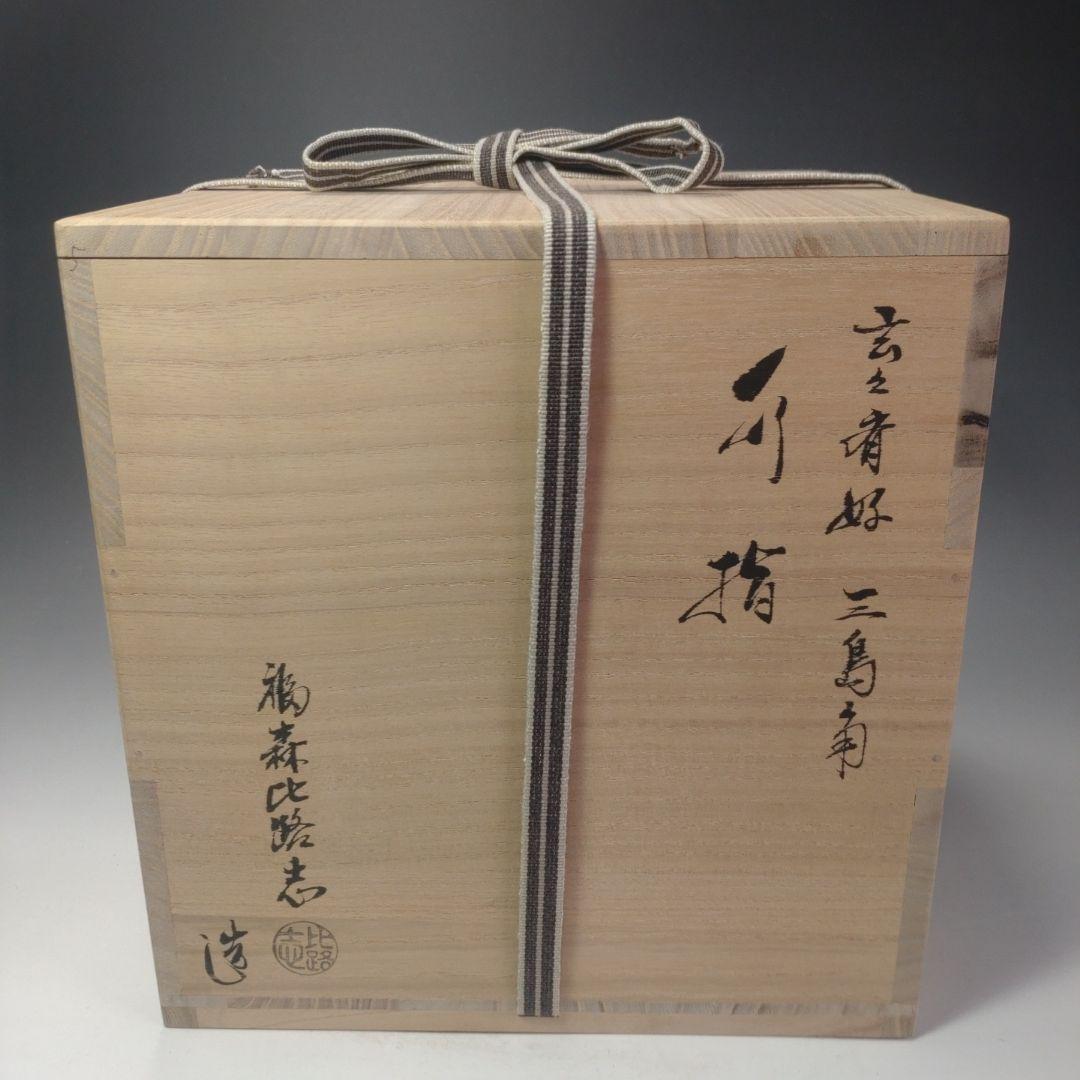 玄々斎好 三島角
水指
福森比路志
造
比路志